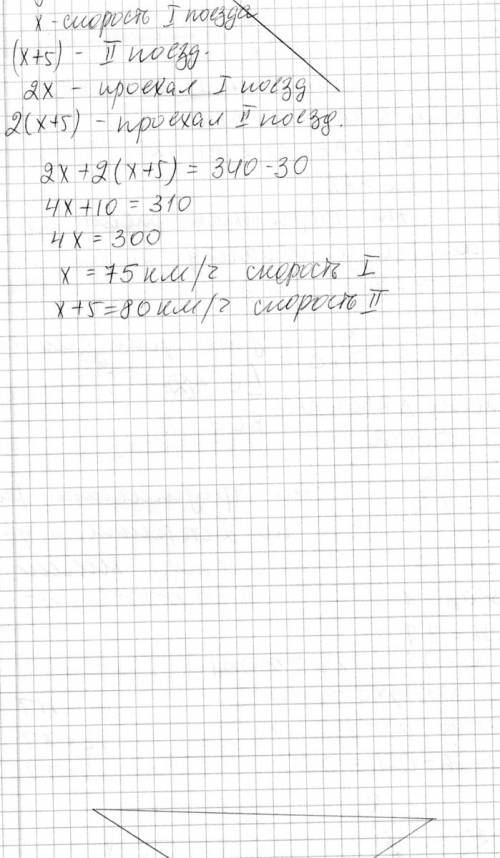 x - скорость I поезда
(x+5) - II поезд.
2x - проехал I поезд
2(x+5) - проехал II поезд.
2x+2(x+5) = 340-30
4x+10 = 310
4x = 300
x = 75 км/ч скорость I
x+5=80 км/ч скорость II